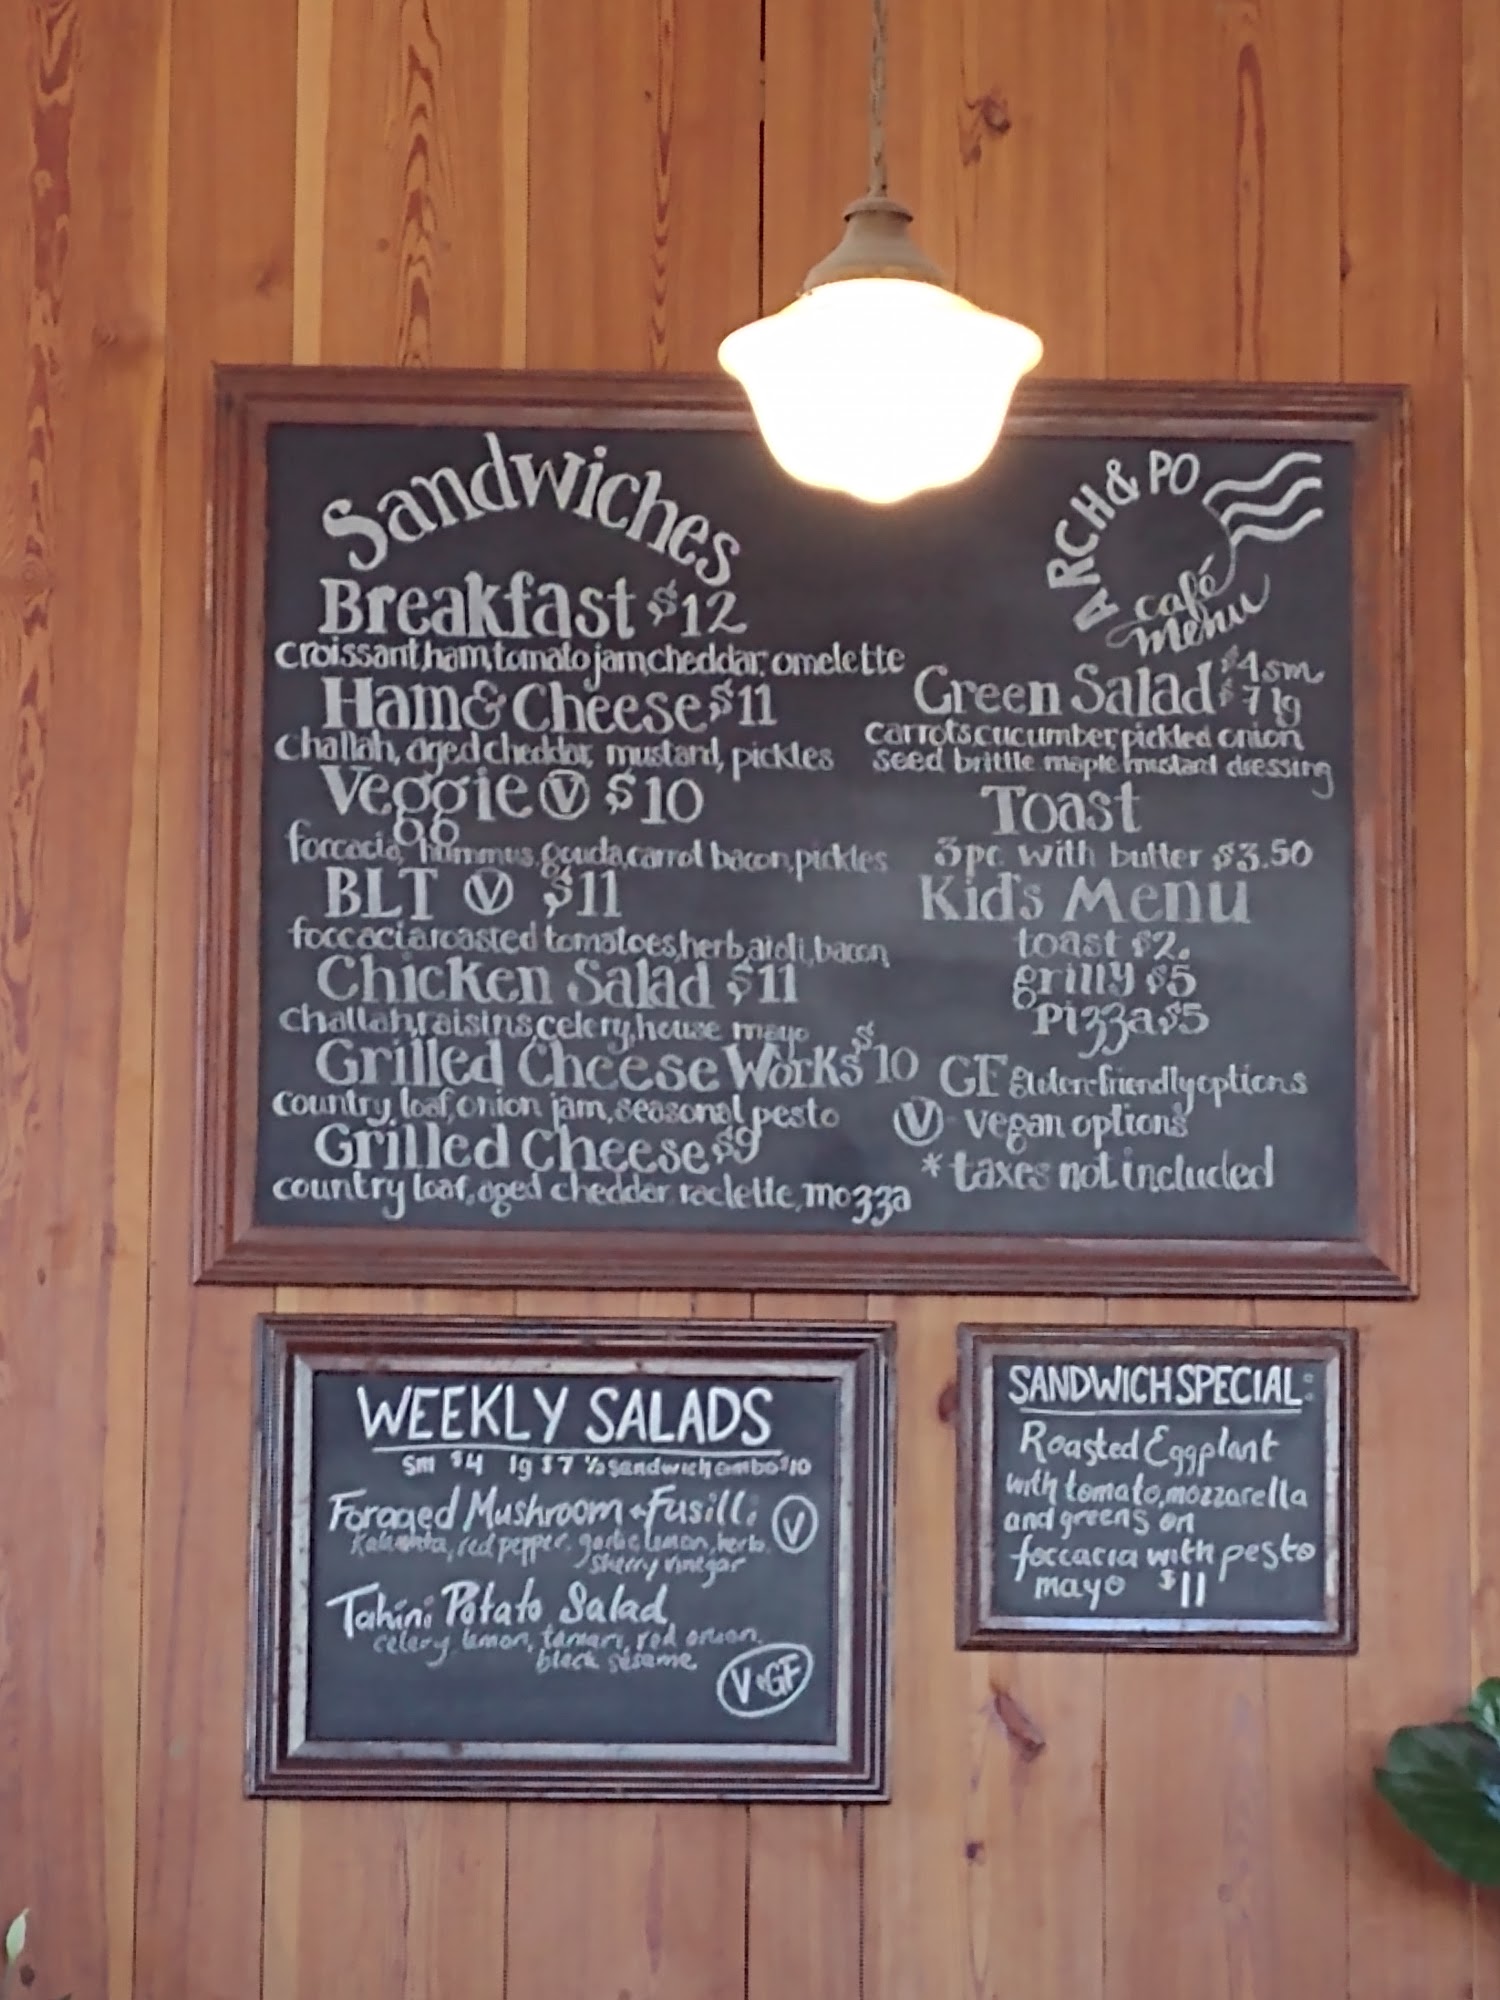 Sandwiches
Breakfast $12
croissant, ham, tomato jam, cheddar, omelette
Ham & Cheese $11
challah, aged cheddar, mustard, pickles
Veggie V $10
foccacia, hummus, gouda, carrot bacon, pickles
BLT V $11
foccacia, roasted tomatoes, herb, aioli, bacon
Chicken Salad $11
challah, raisins, celery, house mayo
Grilled Cheese Works $10
country loaf, onion jam, seasonal pesto
Grilled Cheese $9
country loaf, aged cheddar raclette, mozza
ARCH & PO
café
menu
Green Salad $4 sm
$7 lg
carrots, cucumber, pickled onion
seed brittle maple mustard dressing
Toast
3pc with butter $3.50
Kid's Menu
toast $2.
grilly $5
pizza $5
GF gluten-friendly options
V - vegan options
* taxes not included
WEEKLY SALADS
sm $4 lg $7 ½ sandwich combo $10
Foraged Mushroom + Fusilli V
red pepper, garlic lemon, herb,
sherry vinegar
Tahini Potato Salad
celery, lemon, tamari, red onion,
black sesame
V + GF
SANDWICH SPECIAL:
Roasted Eggplant
with tomato, mozzarella
and greens on
foccacia with pesto
mayo $11